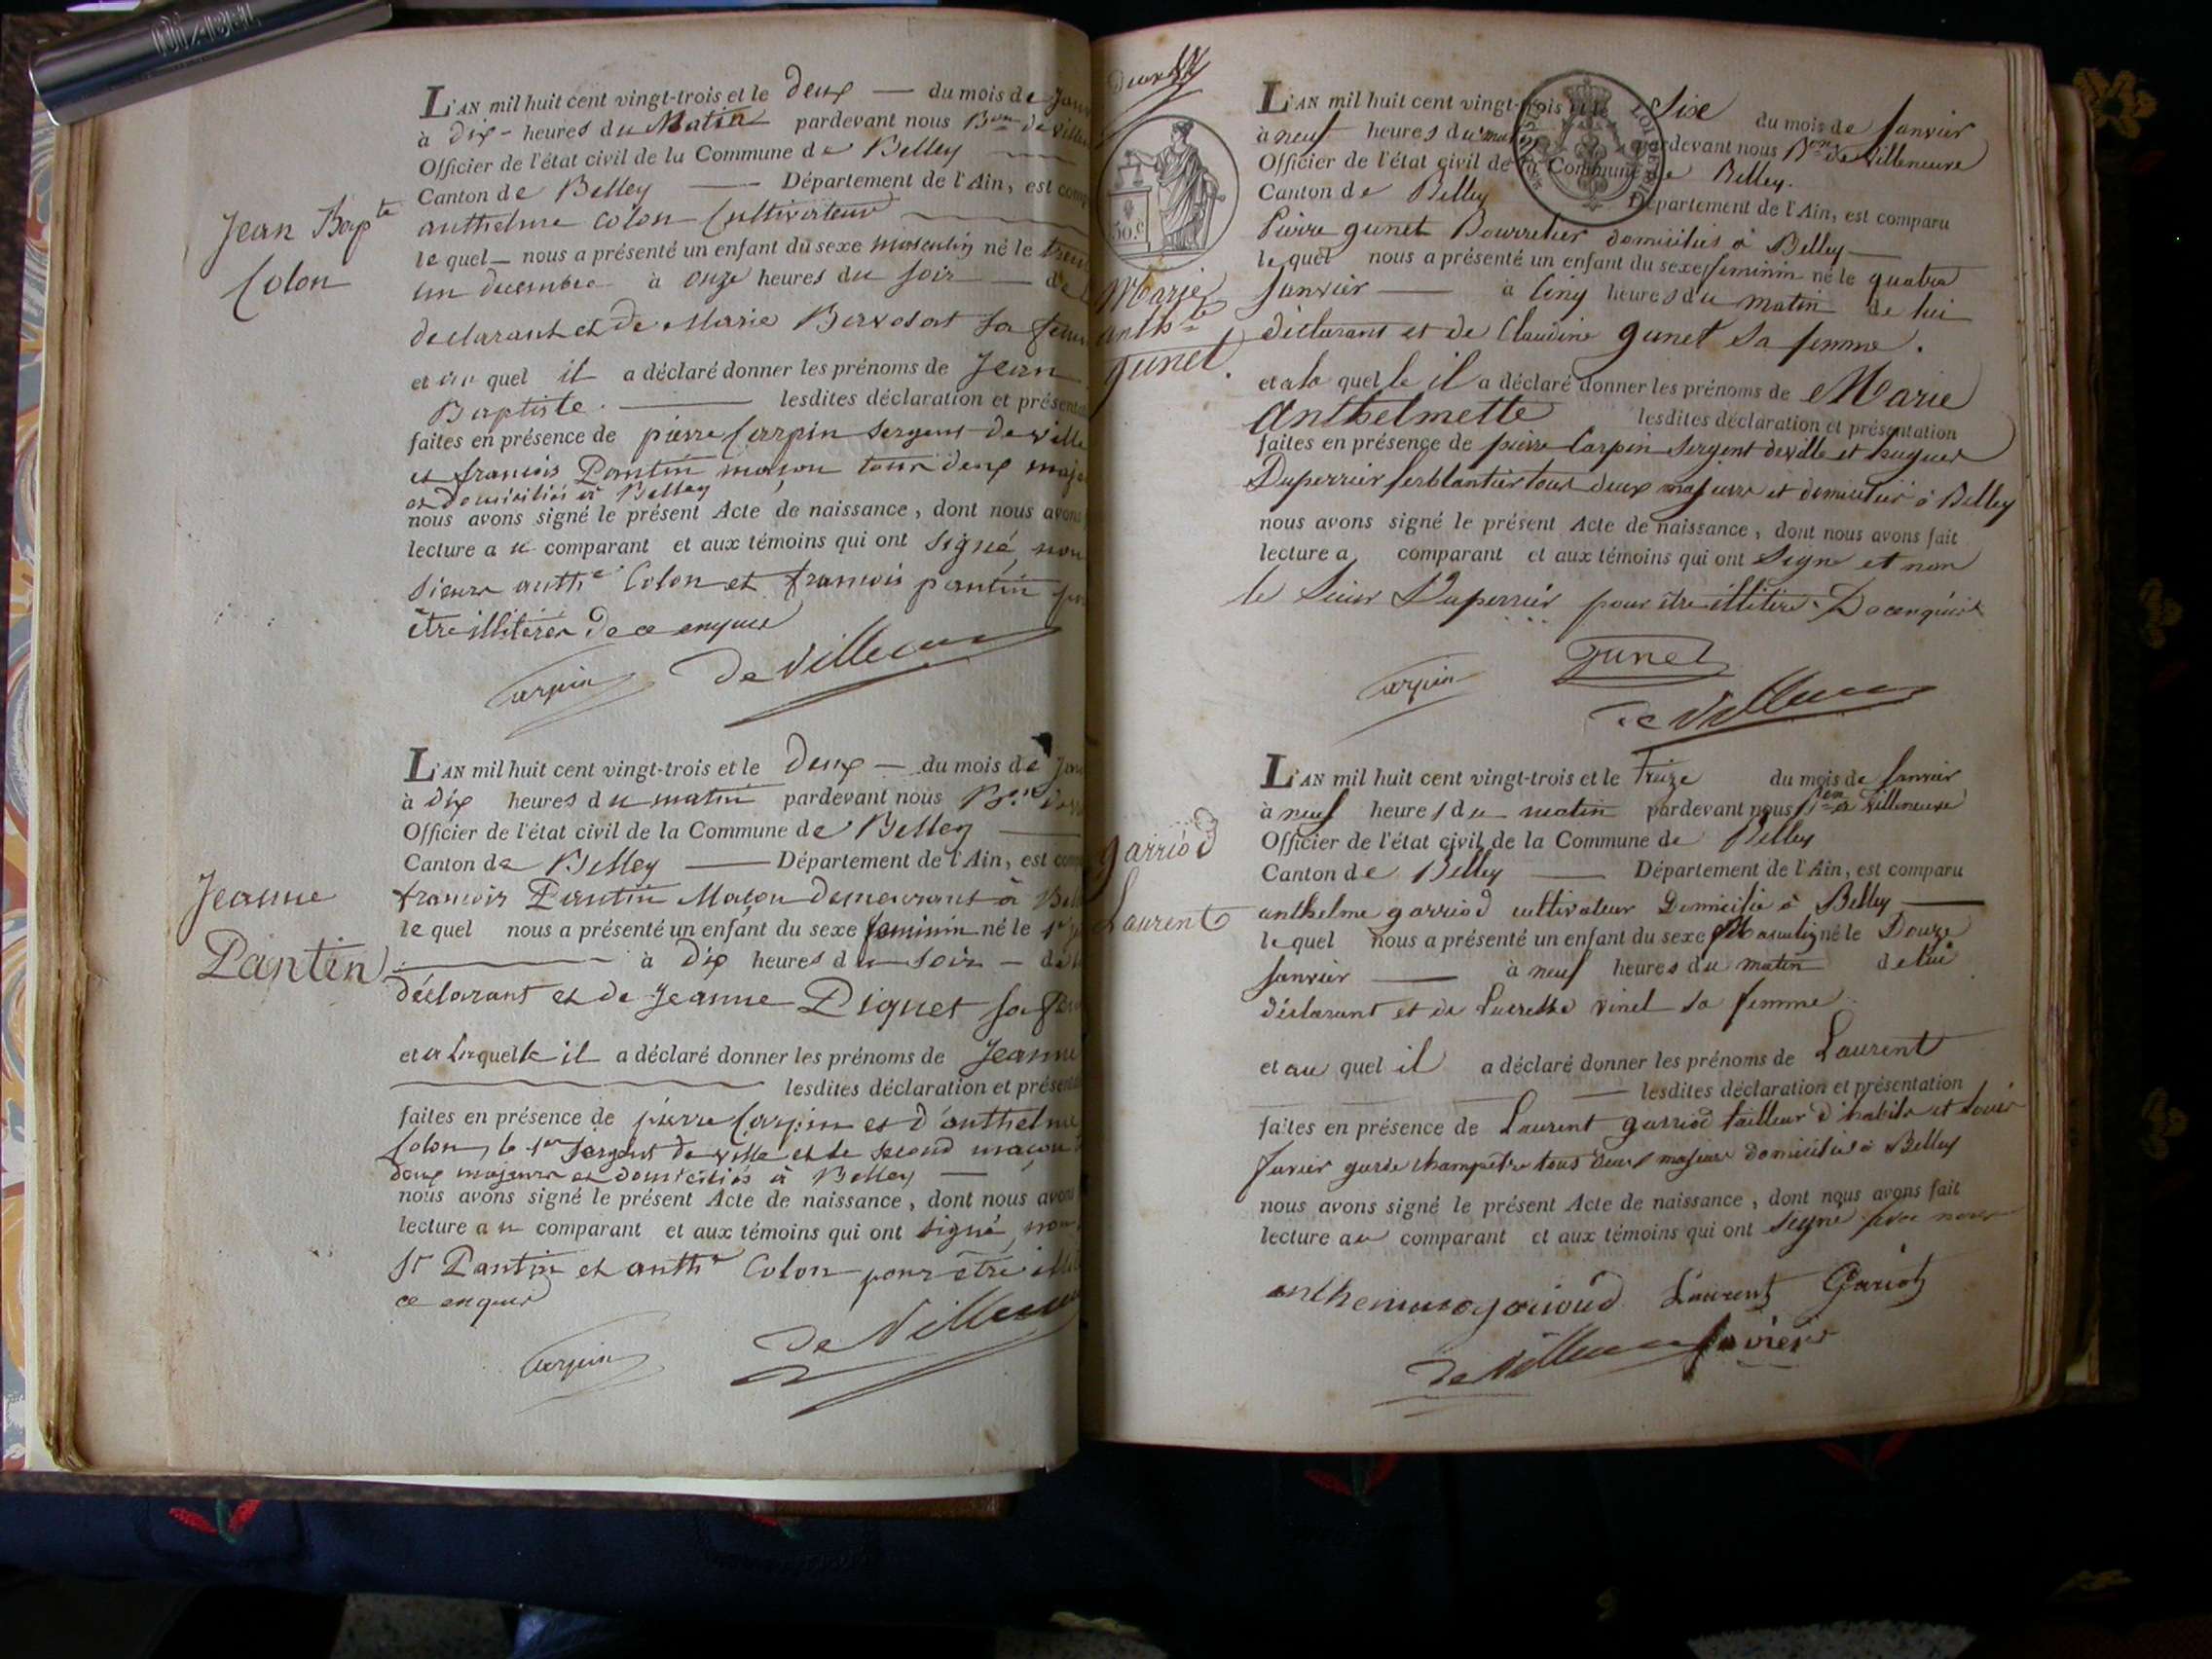 DIABEL
L'AN mil huit cent vingt-trois et le deux — du mois de
à dix heures du Matin pardevant nous B.on de
Officier de l'état civil de la Commune de Belley
Canton de Belley — Département de l'Ain, est
Jean Bap.te
Colon
anthelme Colon Cultivateur
le quel nous a présenté un enfant du sexe masculin né le
un decembre à onze heures du soir
declarant et de Marie sa
et au quel il a déclaré donner les prénoms de Jean
Baptiste. — lesdites déclaration et
faites en présence de pierre Carpin Sergent de ville
et francois Pantin maçon tous deux
et domiciliés à Belley
nous avons signé le présent Acte de naissance, dont nous
lecture au comparant et aux témoins qui ont signé, non
sieurs anth.e Colon et francois pantin
être illitérés de ce enquis
Carpin de Villeneuve
L'AN mil huit cent vingt-trois et le deux — du mois de
à dix heures du matin pardevant nous B.on
Officier de l'état civil de la Commune de Belley
Canton de Belley — Département de l'Ain, est
Jeanne
Pantin
francois Pantin Maçon demeurant à
le quel nous a présenté un enfant du sexe feminin né le 1er
à dix heures du soir
déclarant et de Jeanne Piquet sa
et a laquelle il a déclaré donner les prénoms de Jeanne
lesdites déclaration et
faites en présence de pierre Carpin et d'anthelme
Colon, le 1er Sergent de ville et le second maçon
deux majeurs et domiciliés à Belley
nous avons signé le présent Acte de naissance, dont nous
lecture au comparant et aux témoins qui ont signé, non
Sr Pantin et anth.e Colon pour être
ce enquis
Carpin de Villeneuve
L'AN mil huit cent vingt-trois et le Six du mois de Janvier
à neuf heures du matin pardevant nous B.on de Villeneuve
Officier de l'état civil de la Commune de Belley.
Canton de Belley Département de l'Ain, est comparu
50.c
Marie
anth.te
gunet.
Pierre gunet Bourrelier domicilié à Belley
le quel nous a présenté un enfant du sexe feminin né le quatre
Janvier — à Cinq heures du matin de lui
déclarant et de Claudine gunet sa femme.
et a la quelle il a déclaré donner les prénoms de Marie
Anthelmette lesdites déclaration et présentation
faites en présence de pierre Carpin Sergent de ville et hugues
Duperrier ferblantier tous deux majeurs et domiciliés à Belley
nous avons signé le présent Acte de naissance, dont nous avons fait
lecture a comparant et aux témoins qui ont Signé et non
le Sieur Duperrier pour être illitéré. De ce enquis
Carpin gunet
de Villeneuve
L'AN mil huit cent vingt-trois et le Treize du mois de Janvier
à neuf heures du matin pardevant nous B.on de Villeneuve
Officier de l'état civil de la Commune de Belley
Canton de Belley — Département de l'Ain, est comparu
garriod
Laurent
anthelme garriod cultivateur Domicilié à Belley
le quel nous a présenté un enfant du sexe Masculin né le Douze
Janvier — à neuf heures du matin de lui
déclarant et de Lucresse vinel sa femme
et au quel il a déclaré donner les prénoms de Laurent
lesdites déclaration et présentation
faites en présence de Laurent garriod tailleur d'habits et Louis
Juvier garde champêtre tous deux majeurs domiciliés à Belley
nous avons signé le présent Acte de naissance, dont nous avons fait
lecture au comparant et aux témoins qui ont signé avec nous
Laurent Gariod
de Villeneuve